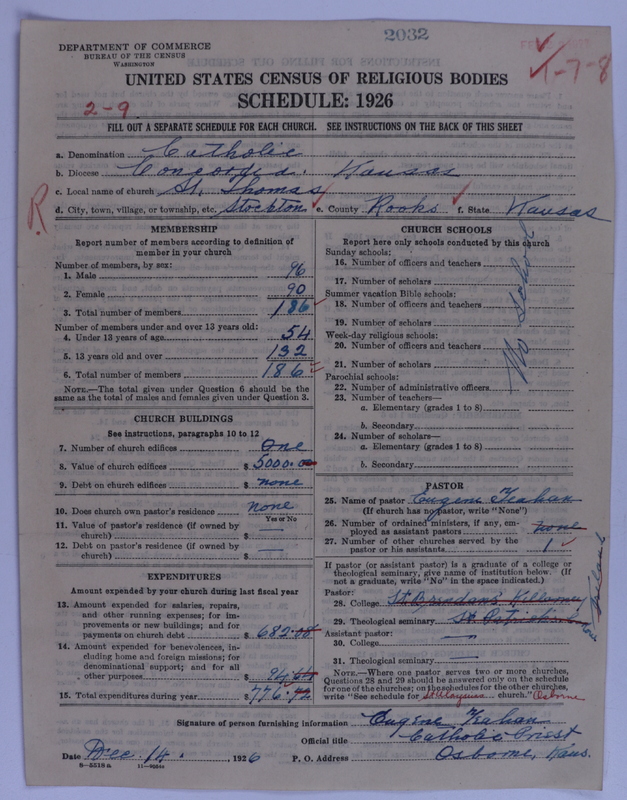 2032
DEPARTMENT OF COMMERCE
BUREAU OF THE CENSUS
WASHINGTON
1-7-8
UNITED STATES CENSUS OF RELIGIOUS BODIES
SCHEDULE: 1926
2-9
FILL OUT A SEPARATE SCHEDULE FOR EACH CHURCH. SEE INSTRUCTIONS ON THE BACK OF THIS SHEET
a. Denomination Catholic
b. Diocese Concordia Kansas
c. Local name of church St. Thomas
R d. City, town, village, or township, etc. Stockton e. County Rooks f. State Kansas
MEMBERSHIP
Report number of members according to definition of
member in your church
Number of members, by sex:
1. Male 96
2. Female 90
3. Total number of members 186
Number of members under and over 13 years old:
4. Under 13 years of age 54
5. 13 years old and over 132
6. Total number of members 186
NOTE.—The total given under Question 6 should be the
same as the total of males and females given under Question 3.
CHURCH BUILDINGS
See instructions, paragraphs 10 to 12
7. Number of church edifices One
8. Value of church edifices $ 5000.00
9. Debt on church edifices $ none
10. Does church own pastor's residence none
Yes or No
11. Value of pastor's residence (if owned by
church) $ —
12. Debt on pastor's residence (if owned by
church) $ —
EXPENDITURES
Amount expended by your church during last fiscal year
13. Amount expended for salaries, repairs,
and other running expenses; for im-
provements or new buildings; and for
payments on church debt $ 682.
14. Amount expended for benevolences, in-
cluding home and foreign missions; for
denominational support; and for all
other purposes 94.64
15. Total expenditures during year $ 776.72
CHURCH SCHOOLS
Report here only schools conducted by this church
Sunday schools:
16. Number of officers and teachers
17. Number of scholars
Summer vacation Bible schools:
18. Number of officers and teachers
19. Number of scholars
Week-day religious schools:
20. Number of officers and teachers
21. Number of scholars
Parochial schools:
22. Number of administrative officers
23. Number of teachers—
a. Elementary (grades 1 to 8)
b. Secondary
24. Number of scholars—
a. Elementary (grades 1 to 8)
b. Secondary
No school
PASTOR
25. Name of pastor Eugene Keahan
(If church has no pastor, write "None")
26. Number of ordained ministers, if any, em-
ployed as assistant pastors none
27. Number of other churches served by the
pastor or his assistants 1
If pastor (or assistant pastor) is a graduate of a college or
theological seminary, give name of institution below. (If
not a graduate, write "No" in the space indicated.)
Pastor:
28. College St Brendans Killarney
29. Theological seminary St. Patricks Ireland
Assistant pastor:
30. College —
31. Theological seminary —
NOTE.—Where one pastor serves two or more churches,
Questions 28 and 29 should be answered only on the schedule
for one of the churches; on the schedules for the other churches,
write "See schedule for St Aloysius church." Osborne
Signature of person furnishing information Eugene Keahan
Official title Catholic Priest
Date Dec. 14., 1926 P. O. Address Osborne, Kans.
8—5518 a